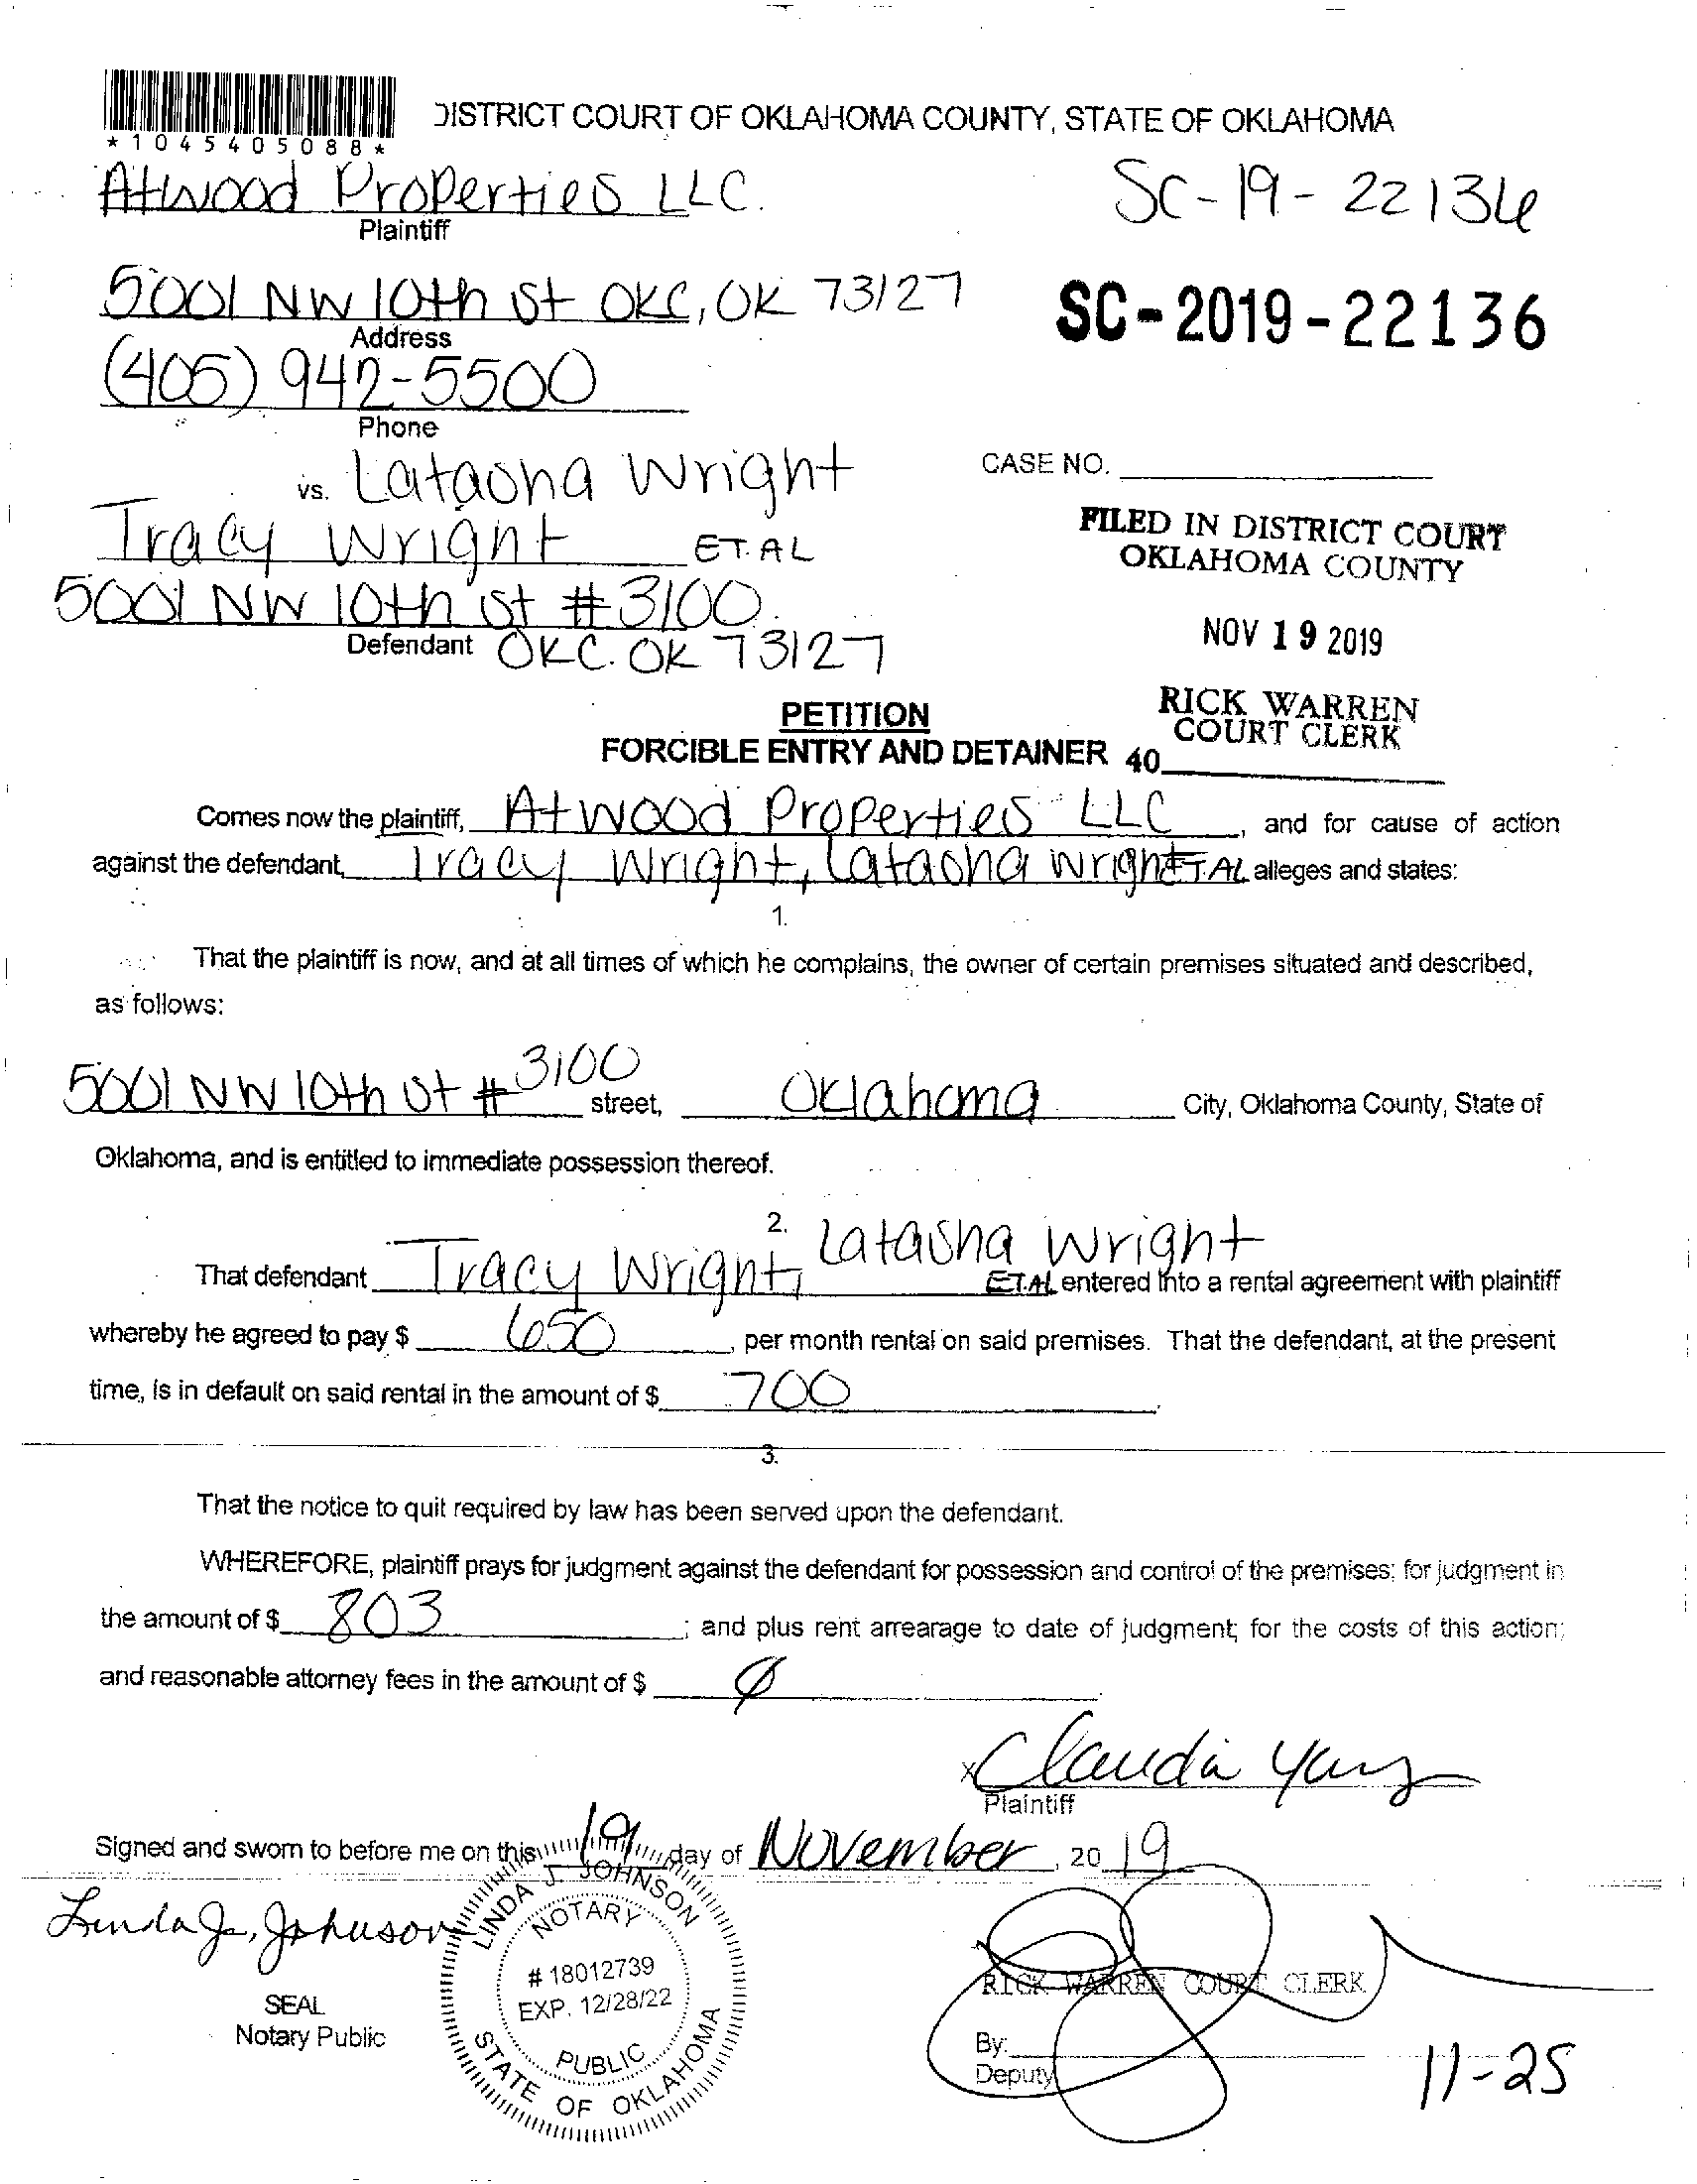 *1045405088*
DISTRICT COURT OF OKLAHOMA COUNTY, STATE OF OKLAHOMA
Atwood Properties LLC.
Plaintiff
SC-19-22136
5001 NW 10th St OKC, OK 73127
Address
SC-2019-22136
(405) 942-5500
Phone
vs. Latasha Wright
CASE NO.
Tracy Wright ET. AL
FILED IN DISTRICT COURT
OKLAHOMA COUNTY
5001 NW 10th St #3100
Defendant OKC. OK 73127
NOV 19 2019
RICK WARREN
COURT CLERK
40
PETITION
FORCIBLE ENTRY AND DETAINER
Comes now the plaintiff, Atwood Properties LLC, and for cause of action
against the defendant, Tracy Wright, Latasha Wright ET. AL alleges and states:
1.
That the plaintiff is now, and at all times of which he complains, the owner of certain premises situated and described,
as follows:
5001 NW 10th St #3100 street, Oklahoma City, Oklahoma County, State of
Oklahoma, and is entitled to immediate possession thereof.
2.
That defendant Tracy Wright, Latasha Wright ET. AL entered into a rental agreement with plaintiff
whereby he agreed to pay $ 650, per month rental on said premises. That the defendant, at the present
time, is in default on said rental in the amount of $ 700.
3.
That the notice to quit required by law has been served upon the defendant.
WHEREFORE, plaintiff prays for judgment against the defendant for possession and control of the premises; for judgment in
the amount of $ 803; and plus rent arrearage to date of judgment; for the costs of this action;
and reasonable attorney fees in the amount of $ 0
x Claudia
Plaintiff
Signed and sworn to before me on this 19 day of November, 2019
Linda J. Johnson
SEAL
Notary Public
LINDA J. JOHNSON
NOTARY
# 18012739
EXP. 12/28/22
PUBLIC
STATE OF OKLAHOMA
RICK WARREN COURT CLERK
By:
Deputy
11-25